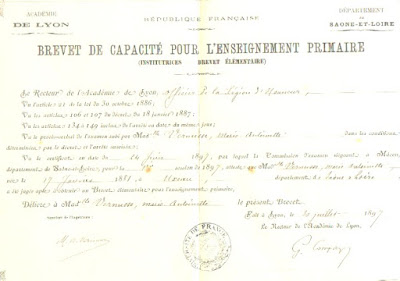 ACADÉMIE
DE LYON
RÉPUBLIQUE FRANÇAISE
DÉPARTEMENT
DE
SAONE-ET-LOIRE
BREVET DE CAPACITÉ POUR L'ENSEIGNEMENT PRIMAIRE
(INSTITUTRICES BREVET ÉLÉMENTAIRE)
Le Recteur de l'Académie de Lyon, officier de la Légion d'Honneur
Vu l'article 21 de la loi du 30 octobre 1886;
Vu les articles 106 et 107 du décret du 18 janvier 1887;
Vu les articles 134 à 149 de l'arrêté en date du même jour;
Vu le procès-verbal de l'examen subi par Mad^lle Marie Antoinette dans les conditions
déterminées par le décret et l'arrêté susvisés;
Vu le certificat en date du 14 juin 1897, par lequel la Commission d'examen siégeant à Mâcon,
département de Saône-et-Loire, pour la session de 1897, atteste que Mad^lle Marie Antoinette
née le 17 janvier 1881 à département de Saône-et-Loire
a été jugée apte à recevoir un Brevet élémentaire pour l'enseignement primaire,
Délivre à Mad^lle Marie Antoinette le présent Brevet.
Fait à Lyon, le 10 juillet 1897
Le Recteur de l'Académie de Lyon,
G. Compayré